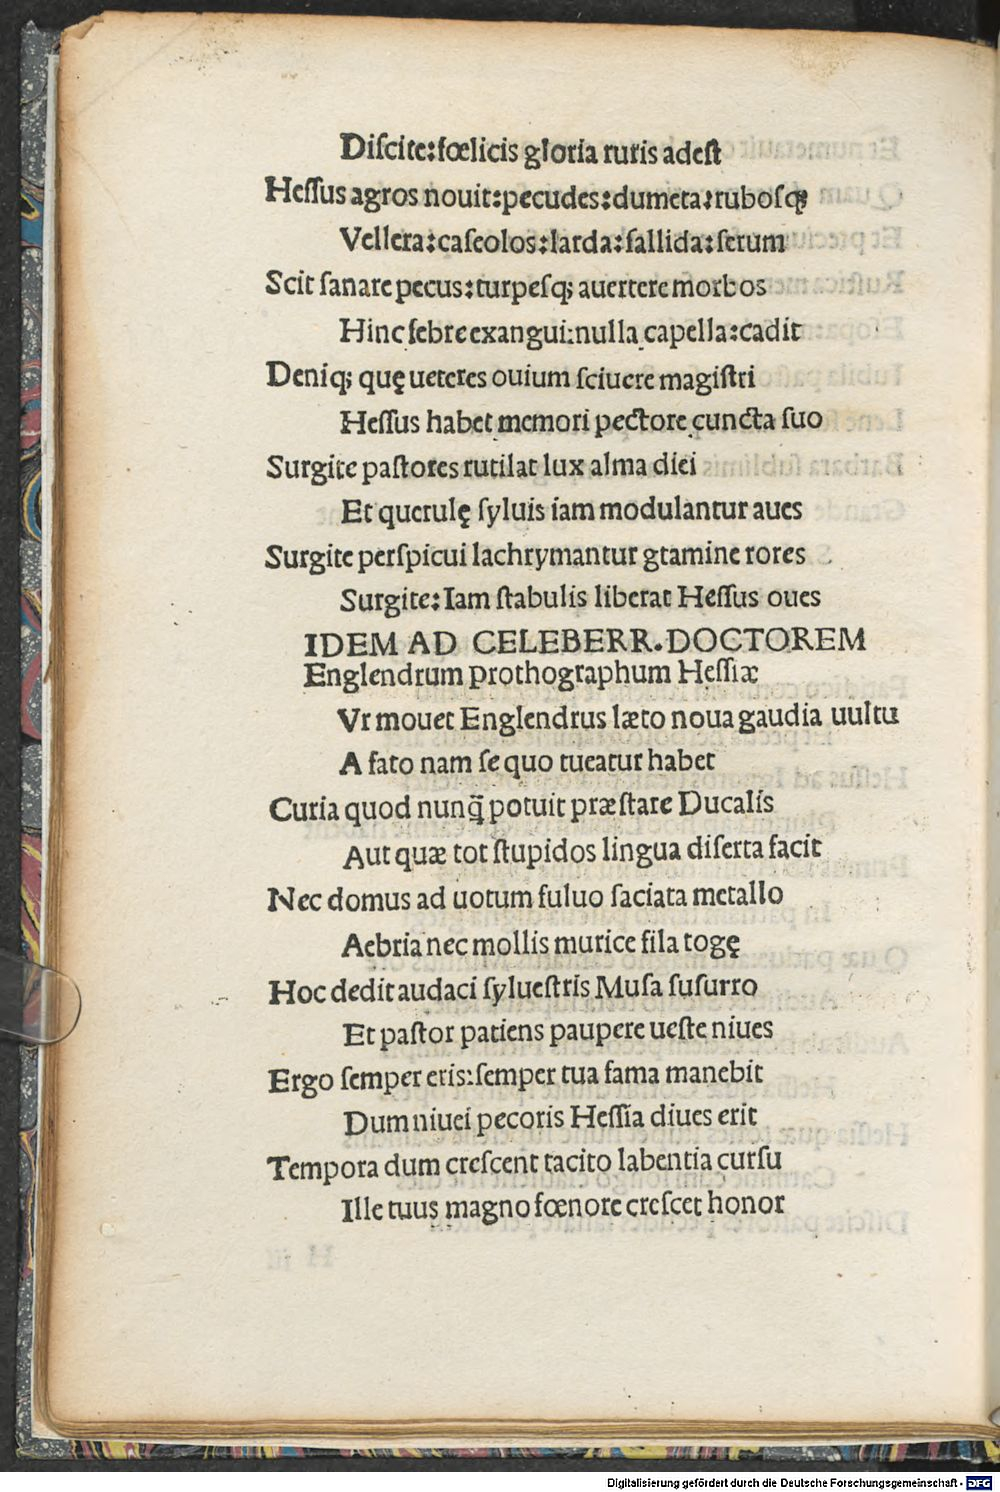 Diſcite:fœlicis gloria ruris adeſt
Heſſus agros nouit:pecudes:dumeta:ruboſq;
Vellera:caſeolos:larda:ſallida:ſerum
Scit ſanare pecus:turpeſq; auertere morbos
Hinc febre exangui:nulla capella:cadit
Deniq; quę ueteres ouium ſciuere magiſtri
Heſſus habet memori pectore cuncta ſuo
Surgite paſtores rutilat lux alma diei
Et querulę ſyluis iam modulantur aues
Surgite perſpicui lachrymantur gtamine rores
Surgite:Iam ſtabulis liberat Heſſus oues
IDEM AD CELEBERR. DOCTOREM
Englendrum prothographum Heſſiæ
Vr mouet Englendrus læto noua gaudia uultu
A fato nam ſe quo tueatur habet
Curia quod nunq̃ potuit præſtare Ducalis
Aut quæ tot ſtupidos lingua diſerta facit
Nec domus ad uotum fuluo ſaciata metallo
Aebria nec mollis murice fila togę
Hoc dedit audaci ſylueſtris Muſa ſuſurro
Et paſtor patiens paupere ueſte niues
Ergo ſemper eris:ſemper tua fama manebit
Dum niuei pecoris Heſſia diues erit
Tempora dum creſcent tacito labentia curſu
Ille tuus magno fœnore creſcet honor
Digitalisierung gefördert durch die Deutsche Forschungsgemeinschaft - DFG